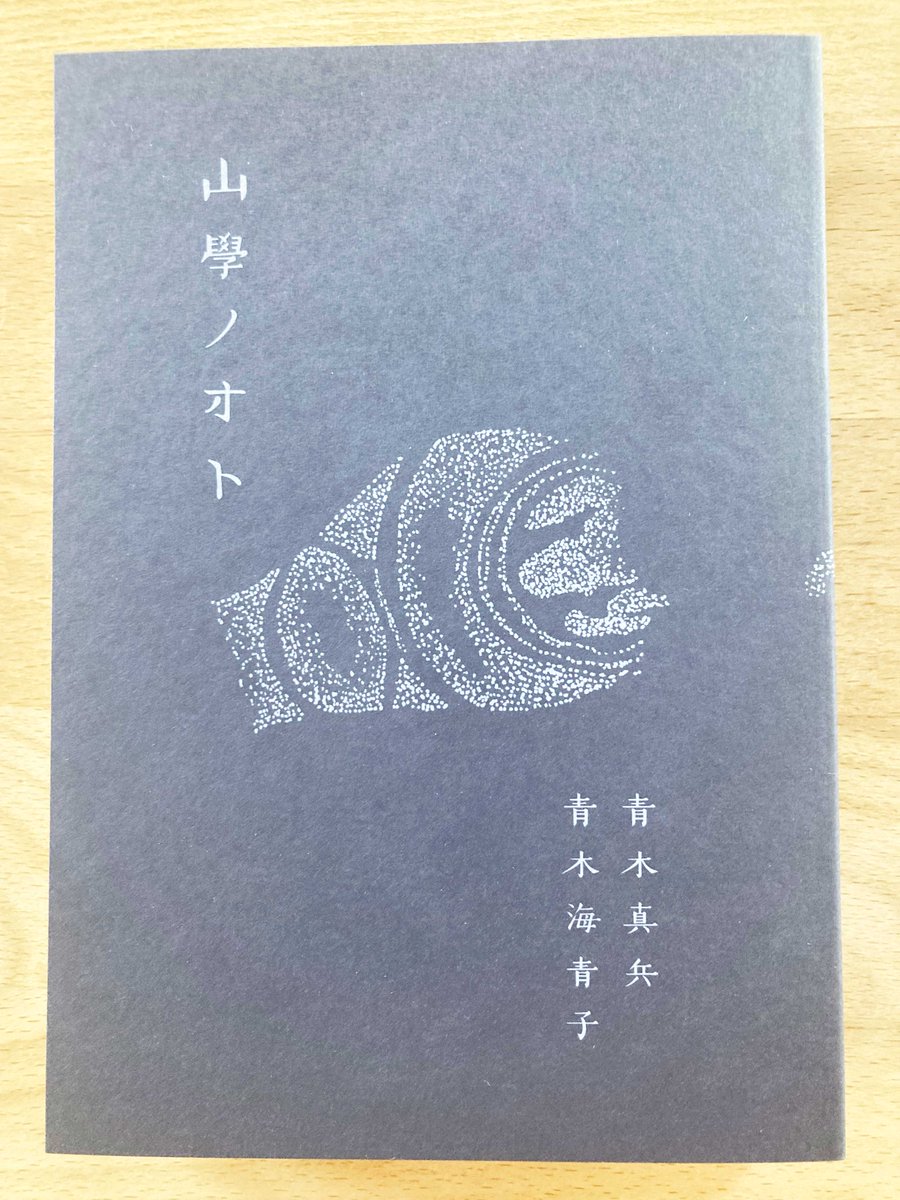 山學ノオト
青木真兵
青木海青子